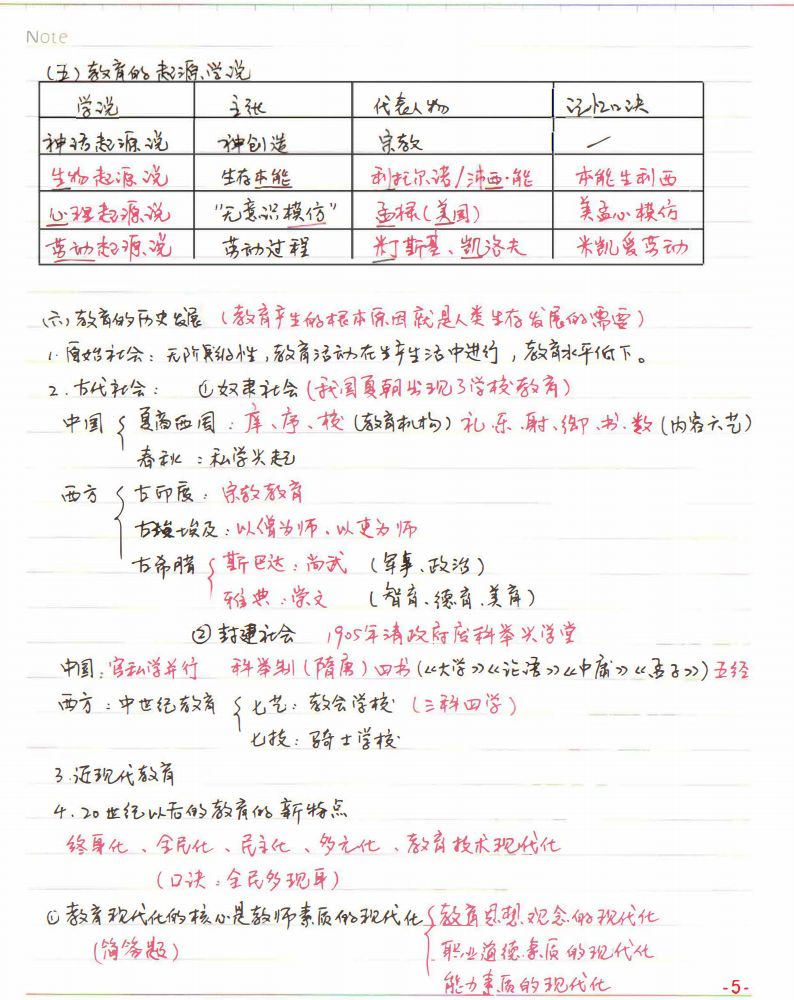 Note
(五)教育的起源学说
学说 主张 代表人物 记忆口决
神话起源说 神创造 宗教 —
生物起源说 生存本能 利托尔诺/沛西·能 本能生利西
心理起源说 "无意识模仿" 孟禄(美国) 美孟心模仿
劳动起源说 劳动过程 米丁斯基、凯洛夫 米凯爱劳动
(六)教育的历史发展 (教育产生的根本原因就是人类生存发展的需要)
1.原始社会:无阶级性,教育活动在生产生活中进行,教育水平低下。
2.古代社会: ①奴隶社会(我国夏朝出现了学校教育)
中国 { 夏商西周:庠、序、校(教育机构)礼.乐.射.御.书.数(内容六艺)
春秋:私学兴起
西方 { 古印度:宗教教育
古埃及:以僧为师、以吏为师
古希腊 { 斯巴达:尚武 (军事、政治)
雅典:崇文 (智育、德育、美育)
②封建社会 1905年清政府废科举兴学堂
中国:官私学并行 科举制(隋唐)四书(《大学》《论语》《中庸》《孟子》)五经
西方:中世纪教育 { 七艺:教会学校(三科四学)
七技:骑士学校
3.近现代教育
4.20世纪以后的教育的新特点
终身化、全民化、民主化、多元化、教育技术现代化
(口诀:全民多现身)
①教育现代化的核心是教师素质的现代化 { 教育思想观念的现代化
(简答题) 职业道德素质的现代化
能力素质的现代化
-5-